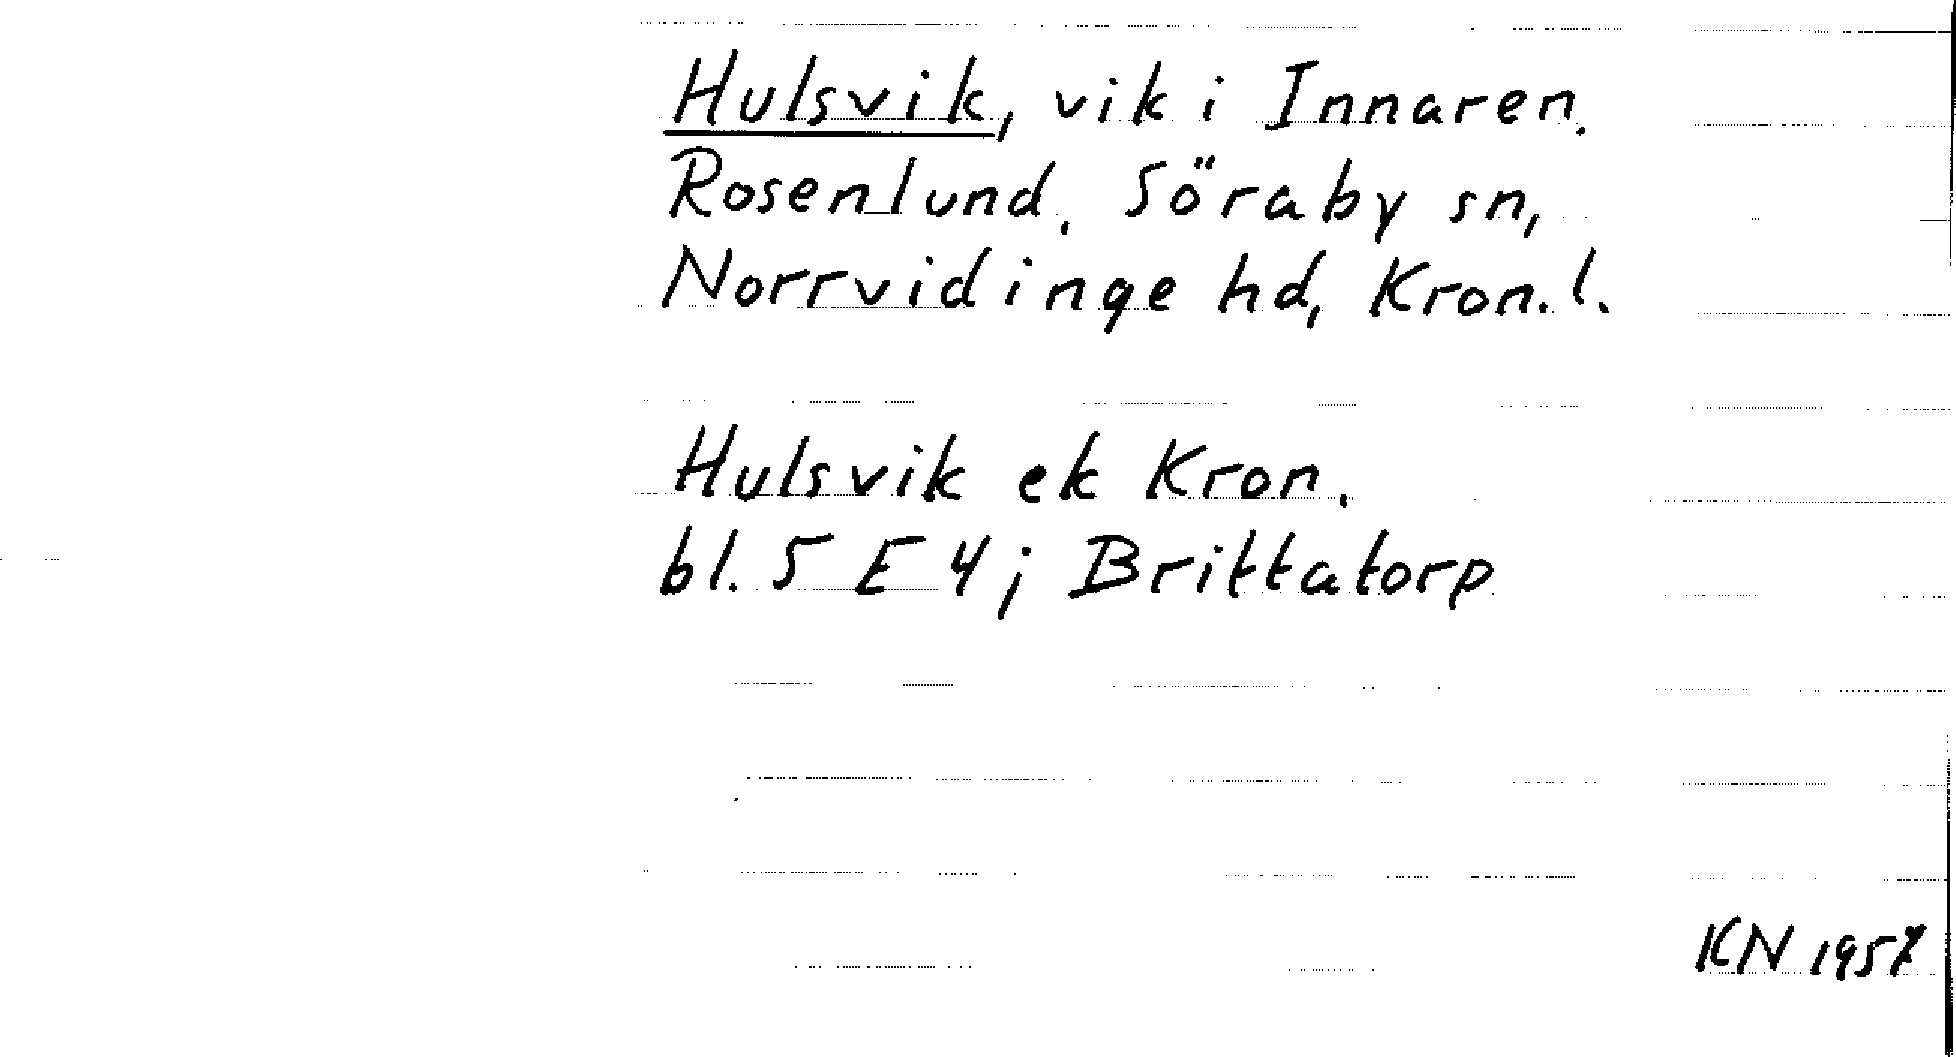 Hulsvik, vik i Innaren.
Rosenlund, Söraby sn,
Norrvidinge hd, Kron.l.
Hulsvik ek Kron.
bl. 5 E 4; Brittatorp
KN 1957